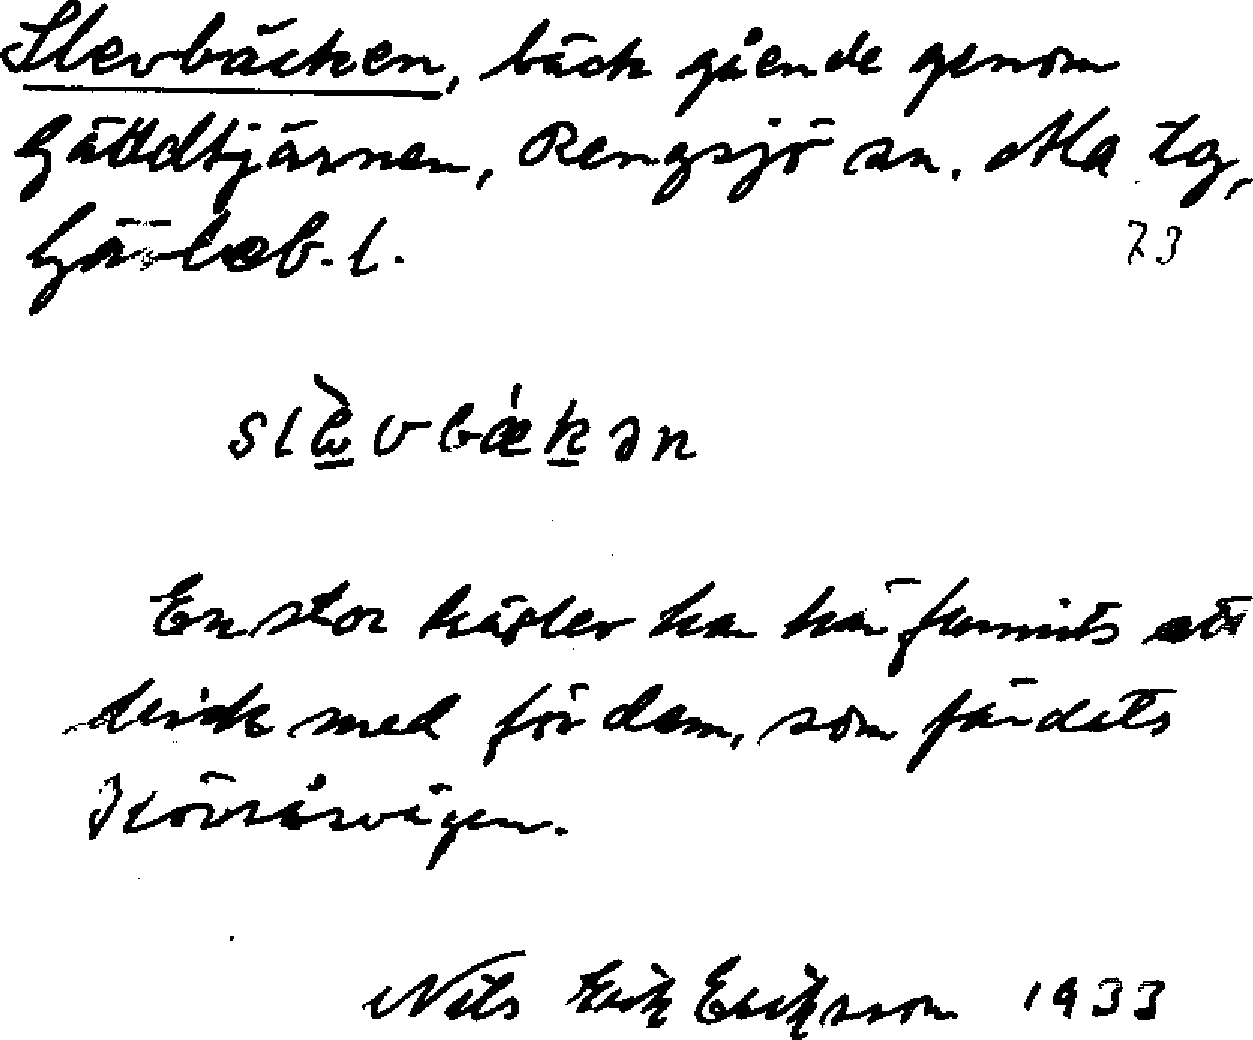 Slevbäcken, bäck gående genom
Gäddtjärnen, Rengsjö sn. Ala tg,
Gävleb. l.
73
slèvbǽkən
En stor träslev har här funnits att
drick med för dem, som färdats
vägen.
Nils Erik Eriksson 1933